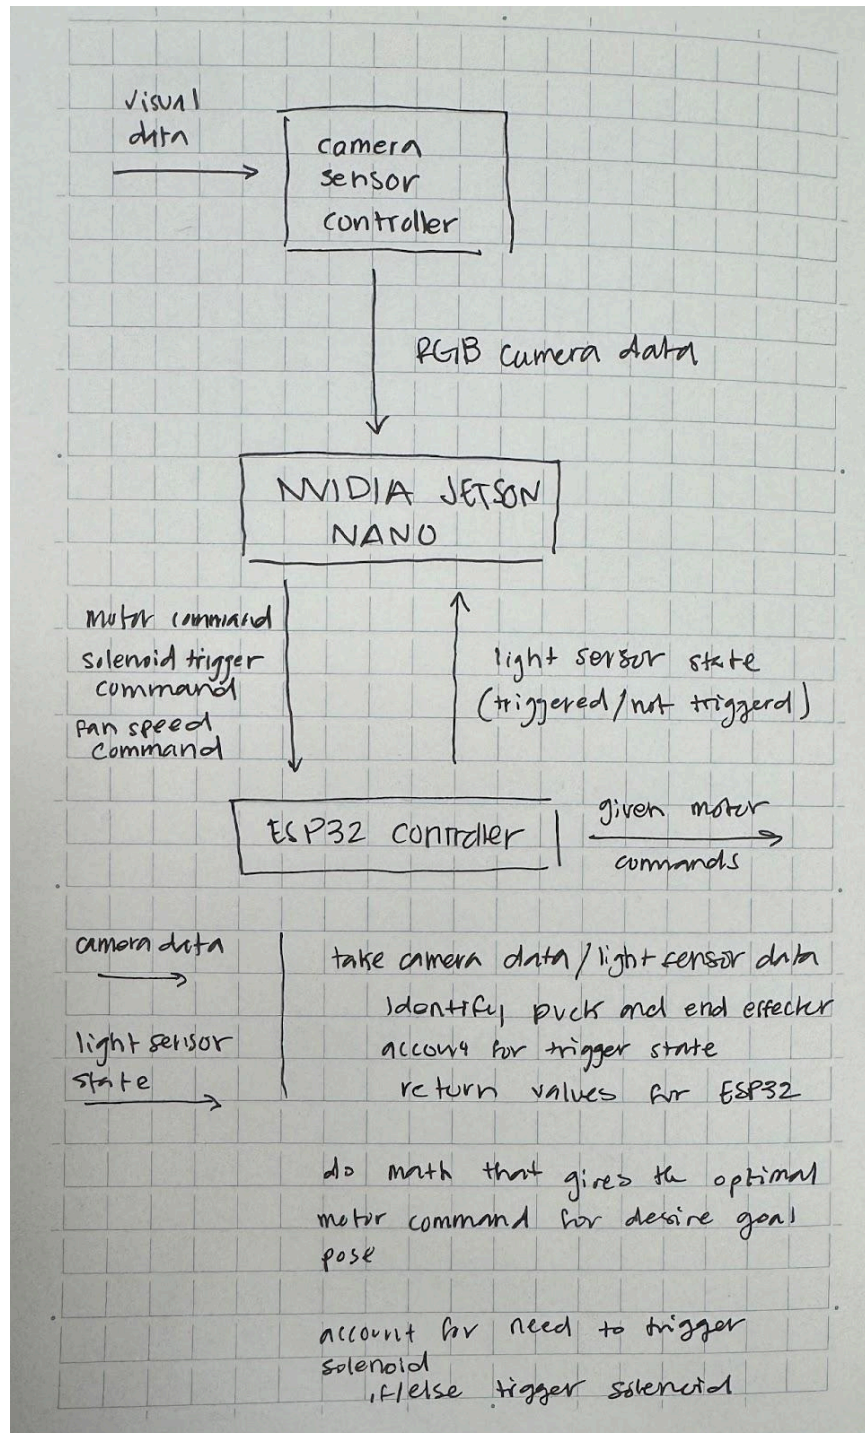 visual
data
camera
sensor
controller
RGB camera data
NVIDIA JETSON
NANO
motor command
solenoid trigger
command
fan speed
command
light sensor state
(triggered/not triggerd)
ESP32 controller
given motor
commands
camera data
light sensor
state
take camera data/light sensor data
identify puck and end effecter
account for trigger state
return values for ESP32
do math that gives the optimal
motor command for desire goal
pose
account for need to trigger
solenoid
if/else tigger solenoid